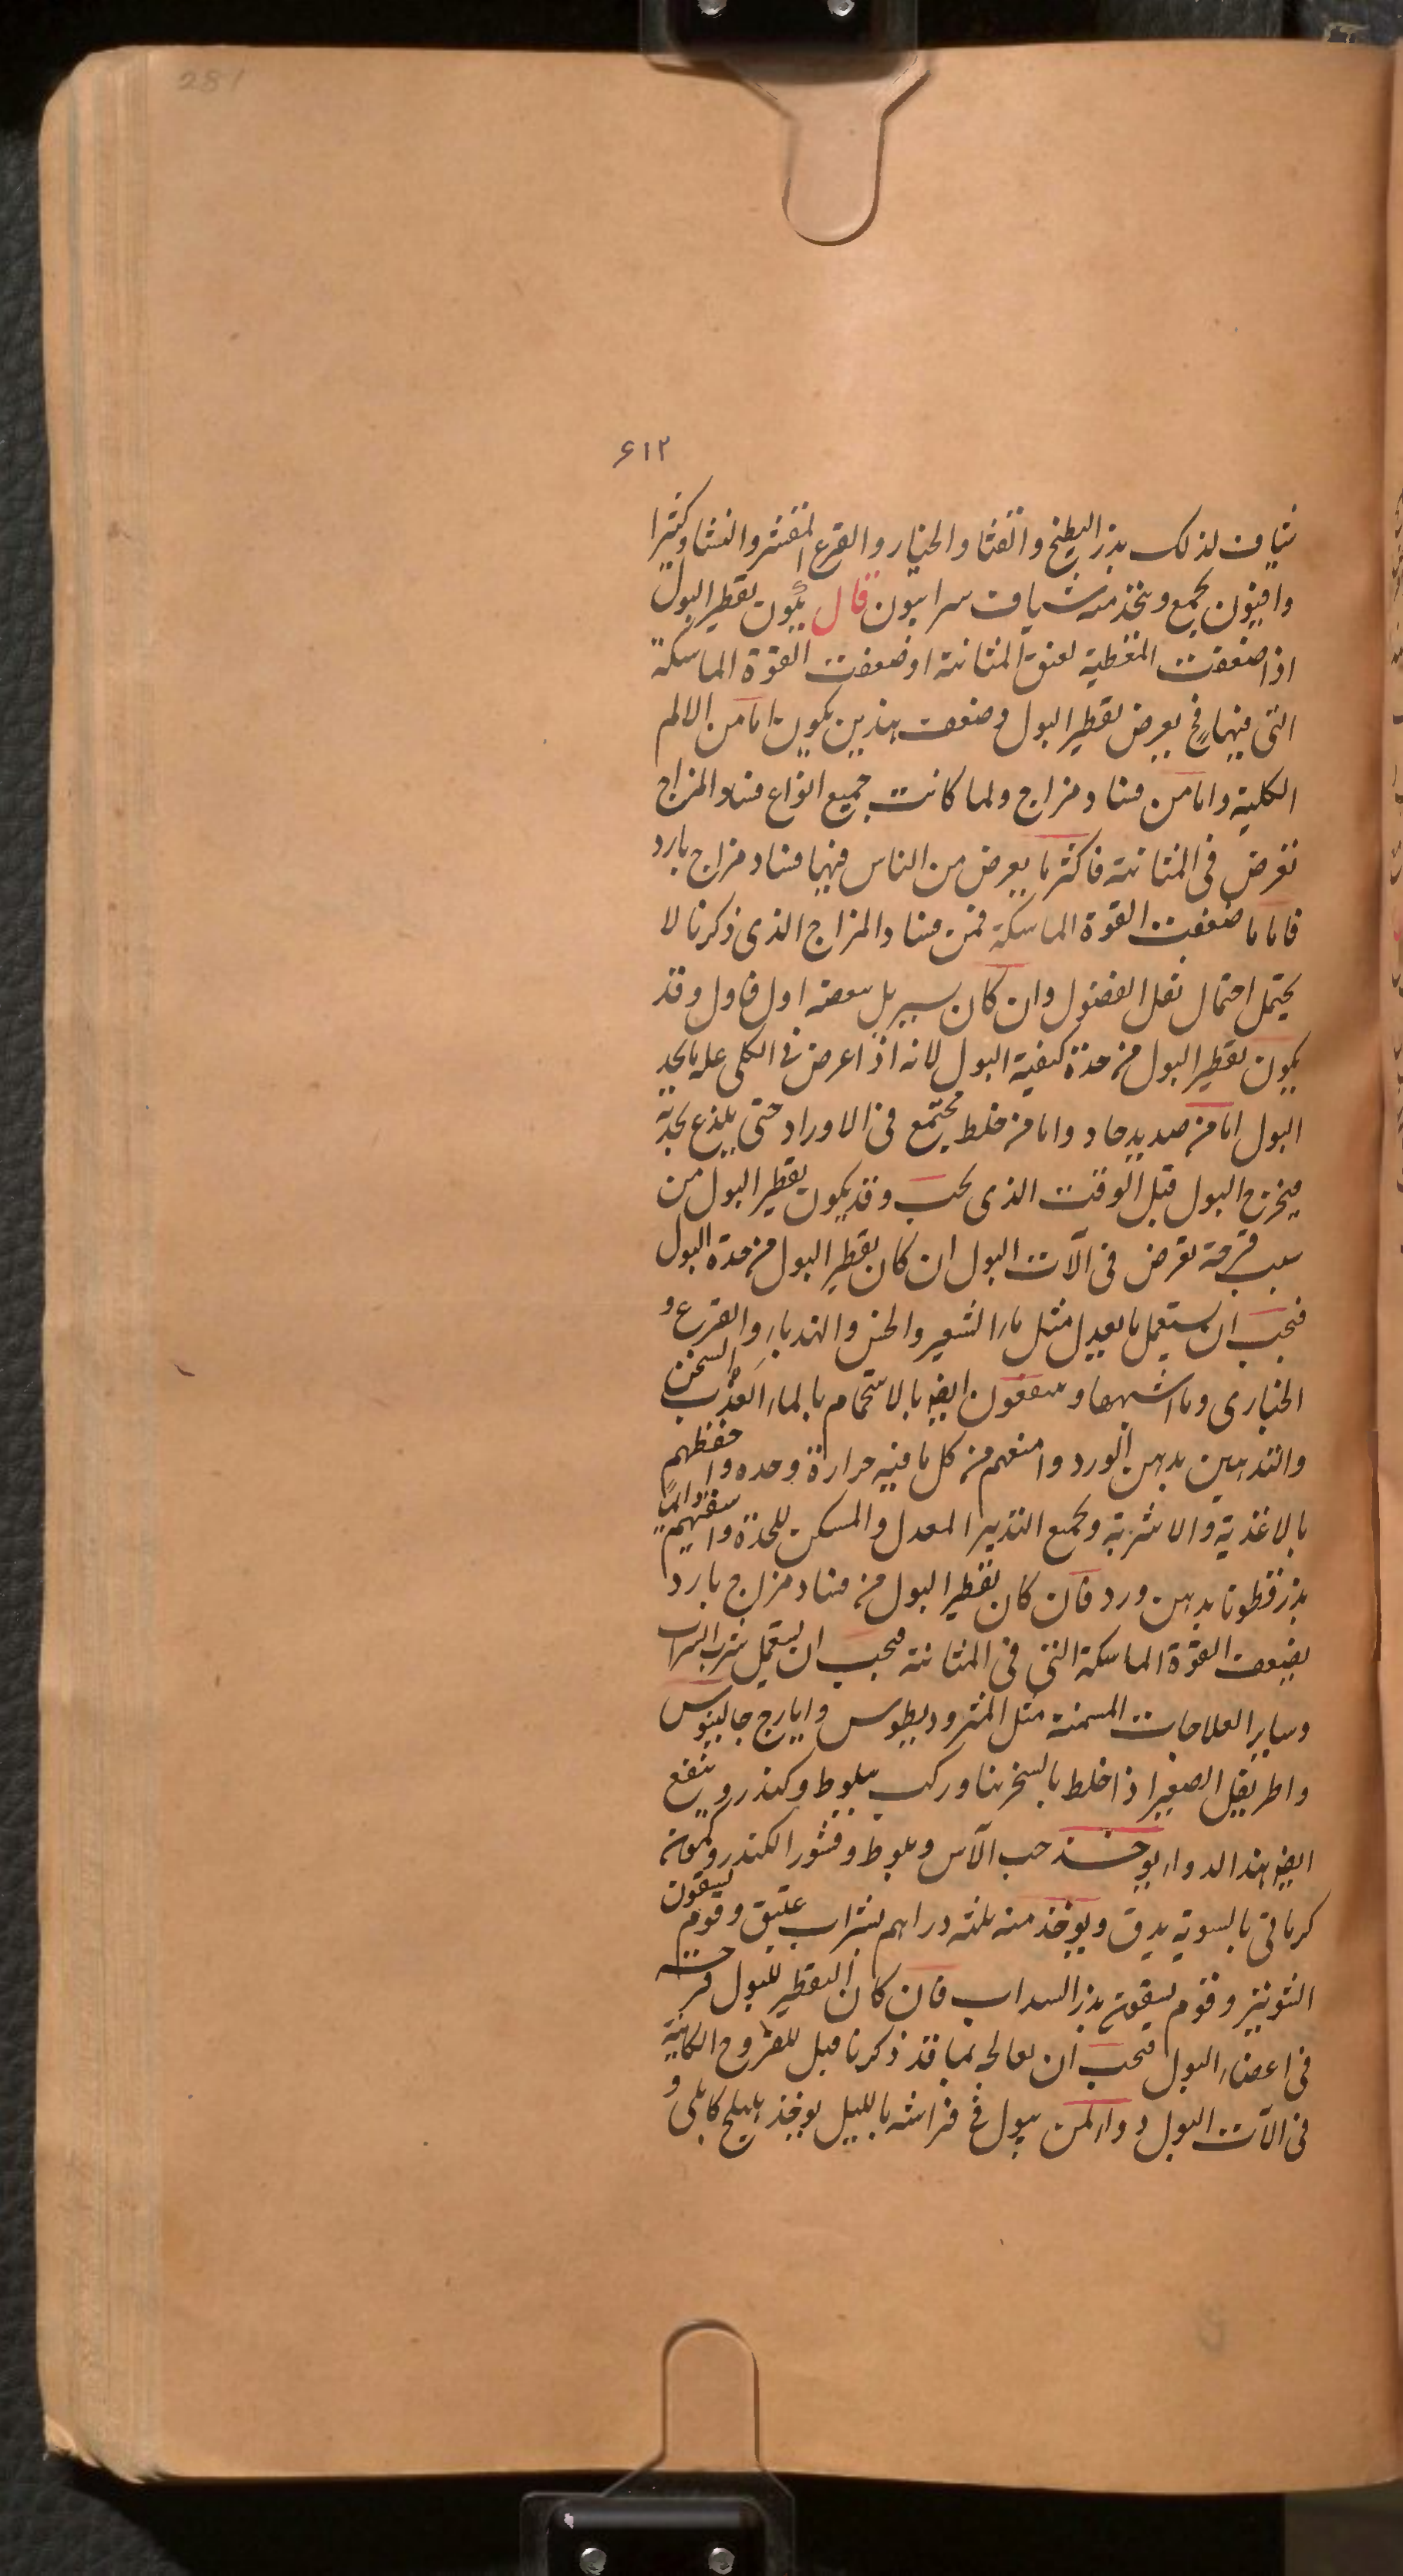 281
۶۱۲
شیاف لذلک بذر البطیخ والقثا والخیار والقرع المقشر والنشا وکثیرا
وافیون یجمع ویتخذ منه شیاف سرابیون قال یکون تقطیر البول
اذا ضعفت المغطیة لعنق المثانة او ضعفت القوة الماسکة
التی فیها فح یعرض تقطیر البول وضعف هذین یکون اما من الالم
الکلیة واما من فساد مزاج ولما کانت جمیع انواع فساد المزاج
تعرض فی المثانة فاکثر ما یعرض من الناس فیها فساد مزاج بارد
فاما ما ضعفت القوة الماسکة فمن فساد المزاج الذی ذکرنا لا
یحتمل احتمال ثقل الفضول وان کان یسیر بل بعضه اول فاول وقد
یکون تقطیر البول من حدة کیفیة البول لانه اذا عرض فی الکلی علة یا یحد
البول اما من صدید حاد واما من خلط یجتمع فی الاوراد حتی یلذع بحدته
فیخرج البول قبل الوقت الذی یجب وقد یکون تقطیر البول من
سبب قرحة تعرض فی آلات البول ان کان تقطیر البول من حدة البول
فیجب ان یستعمل ما یعدل مثل ماء الشعیر والخس والهندباء والقرع و
الخباری وما اشبهها وینتفعون ایضا بالاستحمام بالماء العذب السخن
والتدهین بدهن الورد وامنعهم من کل ما فیه حرارة وحده واحفظهم
بالاغذیة والاشربة وبجمیع التدبیر المعدل والمسکن للحدة واسقیهم دایما
بذر قطونا بدهن ورد فان کان تقطیر البول من فساد مزاج بارد
یضعف القوة الماسکة التی فی المثانة فیجب ان یستعمل شرب الشراب
وسایر العلاجات المسخنة مثل المثرودیطوس وایارج جالینوس
واطریفل الصغیر اذا خلط بالسخرینا ورکب ببلوط وکندر وینفع
ایضا هذا الدواء یوخذ حب الآس وبلوط وقشور الکندر وکمون
کرمانی بالسویة یدق ویوخذ منه ثلثه دراهم بشراب عتیق وقوم یسقون
الشونیز وقوم یسقون بذر السداب فان کان التقطیر للبول قرحته
فی اعضاء البول فیجب ان یعالجه بما قد ذکرنا قبل للقروح الکاینة
فی آلات البول دواء لمن یبول فی فراشه باللیل یوخذ هلیلج کابلی و